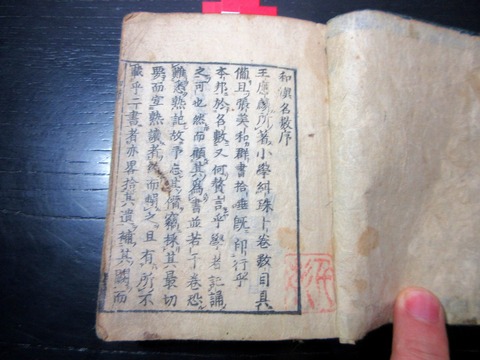 和漢名數序
王應麟所著小學紺珠十卷數目具
備且張美和群書拾唾既印行乎
本邦於名數又何贅言乎學者記誦
之可也然而顧其爲書並若干卷恐
難悉熟記故予忘其僭竊採其最切
要而宜熟讀者 而輯之且有所不
載乎二書者亦略拾其遺補其闕而